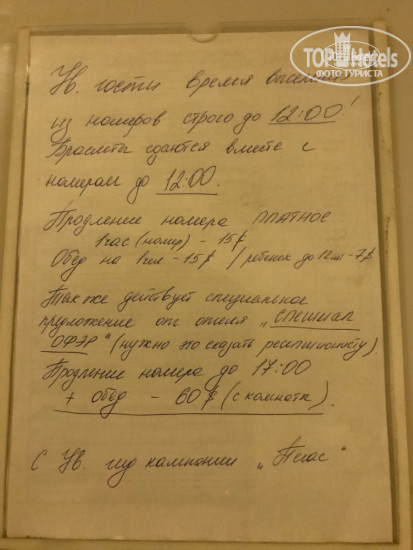 TOP Hotels
ФОТО ТУРИСТА
Ув. гости время выселения
из номеров строго до 12:00!
Браслеты сдаются вместе с
номерам до 12:00.
Продление номера ПЛАТНОЕ
1час (номер) - 15$
Обед на 1чел - 15$ / ребенок до 12лет - 7$
Так же действует специальное
предложение от отеля „СПЕШИАЛ
ОФЭР" (нужно это сказать ресепшионисту).
Продление номера до 17:00
+ обед - 60$ (с комнаты).
С Ув. гид компании „Пегас"